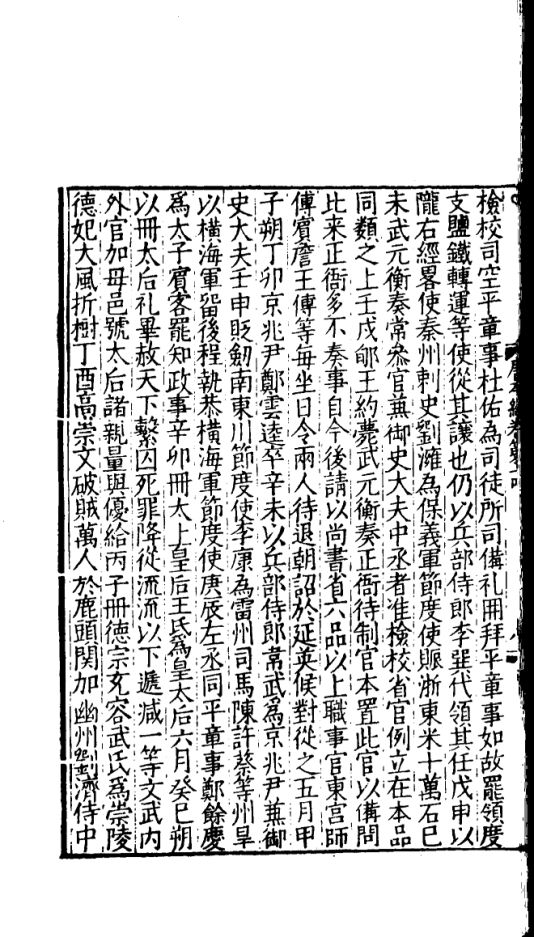 檢校司空平章事杜佑為司徒所司備礼冊拜平章事如故罷領度
支鹽鐵轉運等使從其讓也仍以兵部侍郎李巽代領其任戊申以
隴右經畧使秦州刺史劉澭為保義軍節度使賑浙東米十萬石巳
未武元衡奏常叅官兼御史大夫中丞者准檢校省官例立在本品
同類之上壬戌郇王約薨武元衡奏正衙待制官本置此官以備問
比来正衙多不奏事自今後請以尚書省六品以上職事官東宮師
傅賓詹王傅等每坐日令兩人待退朝詔於延英候對從之五月甲
子朔丁卯京兆尹鄭雲逵卒辛未以兵部侍郎韋武為京兆尹兼御
史大夫壬申貶劒南東川節度使李康為雷州司馬陳許蔡等州旱
以橫海軍留後程執恭橫海軍節度使庚辰左丞同平章事鄭餘慶
為太子賓客罷知政事辛卯冊太上皇后王氏為皇太后六月癸巳朔
以冊太后礼畢赦天下繫囚死罪降從流流以下遞减一等文武内
外官加母邑號太后諸親量與優給丙子冊德宗充容武氏為崇陵
德妃大風折樹丁酉高崇文破賊萬人於鹿頭関加幽州劉濟侍中